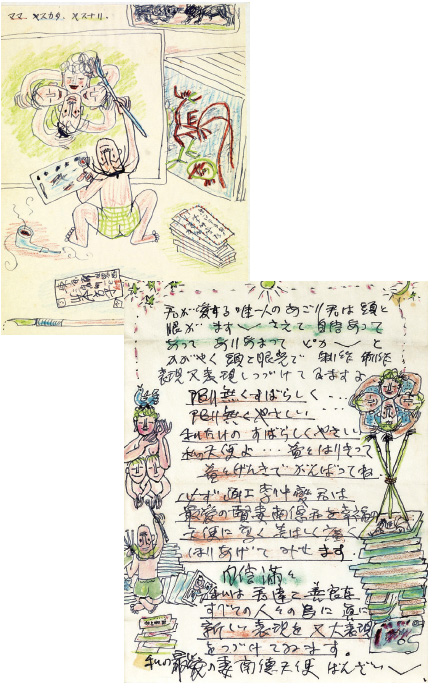 ママ ヤスカタ、ヤスナリ。
君が愛する唯一人のあごり君は頭と
眼がます〱 さえて 自信あって
あって ありあまって ピカ〱 と
かがやく 頭と眼光で 制作 制作
表現又表現しつづけてゐますよ
限り無くすばらしく…
限り無くやさしい…
私だけの すばらしくやさしい
私の天使よ… 益々はりきって
益々げんきで がんばってね
必ず 画工李仲燮君は
最愛の賢妻南德 を幸福の
天使に 高く 美しく 廣く
ほりあげて みせます.
自信満々
僕は 君達と善良な
すべての人々の為に 真に
新しい表現を 又大表現
をつづけてゐます。
私の最愛の妻南德天使 ばんざい〱